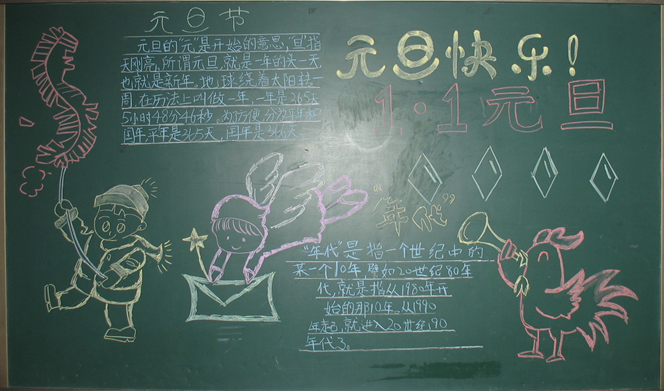 元旦节
元旦的"元"是开始的意思,"旦"指
天刚亮,所谓元旦就是一年的天一天
也就是新年"地球绕着太阳转一
周,在历法上叫做一年,一年是365天
5小时48分46秒,为了方便,分为平年和
闰年,平年是365天,闰年是366天。
元旦快乐!
1·1元旦
"年代"
"年代"是指一个世纪中的
某一个10年,譬如20世纪80年
代,就是指从1980年开
始的那10年。从1990
年起,就进入20世纪90
年代了。